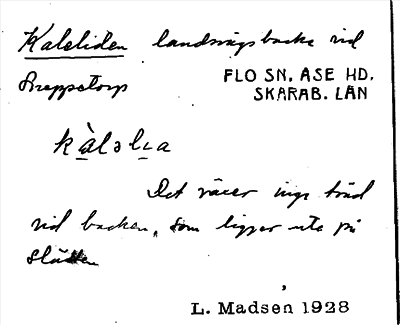 Kaleliden landsvägsbacke vid
Sreppstorp FLO SN. ASE HD.
SKARAB. LÄN
kàləlɩa
Det växer inga träd
vid backen, som ligger ute på
slätten
L. Madsen 1928